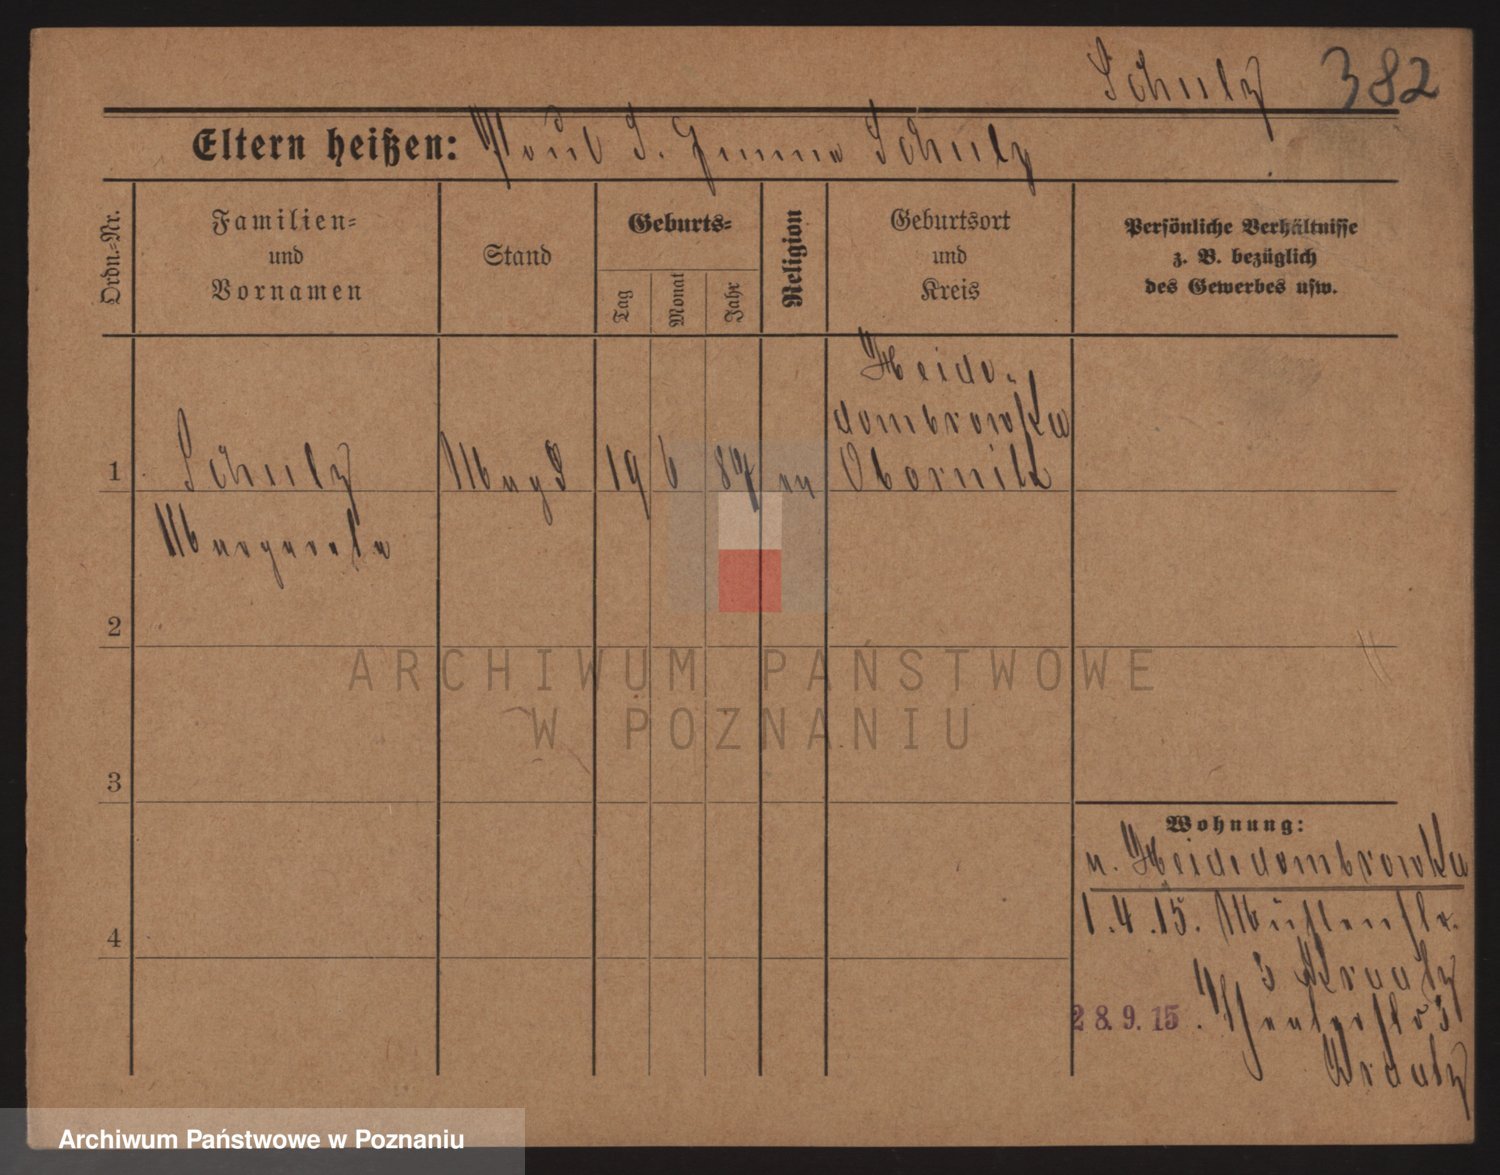 Schulz 382
Eltern heißen: Paul S. Emma Schulz
Ordn.-Nr.
Familien-
und
Vornamen
Stand
Geburts-
Tag
Monat
Jahr
Religion
Geburtsort
und
Kreis
Persönliche Verhältnisse
z. B. bezüglich
des Gewerbes usw.
Heide-
dombrowka
1 Schulz Magd 19 6 87 ev Obornik
Margarete
2
3
4
Wohnung:
v. Heidedombrowka
1.4.15. Mühlenstr.
3
28.9.15.
ARCHIWUM PAŃSTWOWE
W POZNANIU
Archiwum Państwowe w Poznaniu